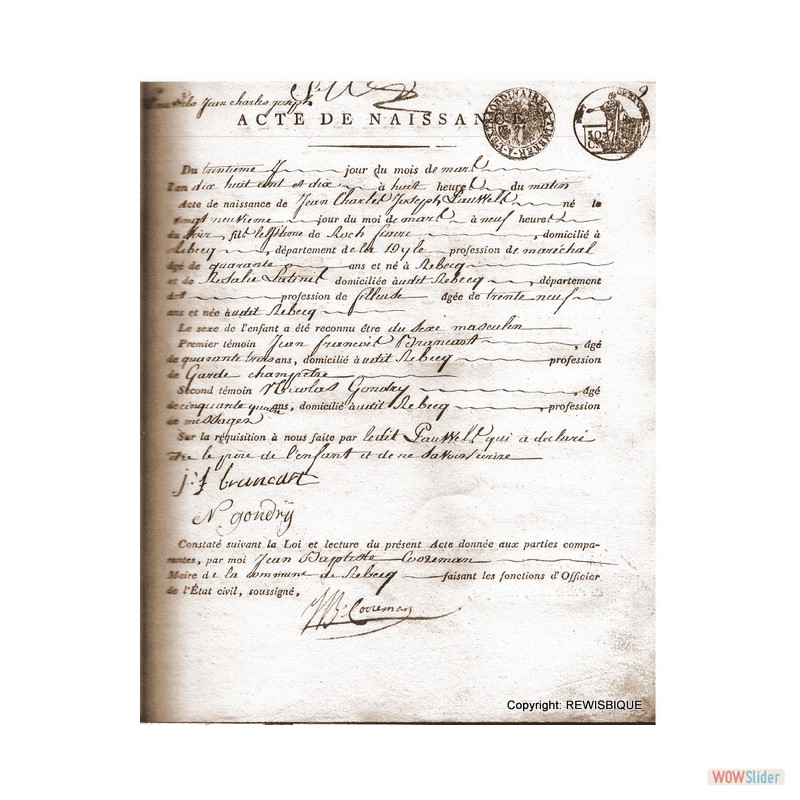 Jean charles joseph
ACTE DE NAISSANCE
9
Du trentieme jour du mois de mars
L'an dix huit cent et dix à huit heures du matin
Acte de naissance de Jean Charles Joseph Pauwels né le
vingt neuvieme jour du moi de mars à neuf heures
du soir, fils legitime de Roch, domicilié à
Rebecq, département de la Dyle profession de maréchal
âgé de quarante ans et né à Rebecq
et de Rosalie domiciliée audit Rebecq, département
profession de fileuse âgée de trente neuf
ans et née audit Rebecq
Le sexe de l'enfant a été reconnu être du sexe masculin
Premier témoin Jean francois Brancart, âgé
de quarante trois ans, domicilié audit Rebecq profession
de Garde champetre
Second témoin Nicolas Gondry, âgé
de cinquante ans, domicilié audit Rebecq, profession
de messager
Sur la réquisition à nous faite par ledit Pauwels qui a declaré
etre le pere de l'enfant et de ne savoir ecrire
j: f brancart
N. gondrÿ
Constaté suivant la Loi et lecture du présent Acte donnée aux parties compa-
rantes, par moi Jean Baptiste Cooreman
Maire de la commune de Rebecq faisant les fonctions d'Officier
de l'État civil, soussigné,
JB Cooreman
Copyright: REWISBIQUE
WOWSlider